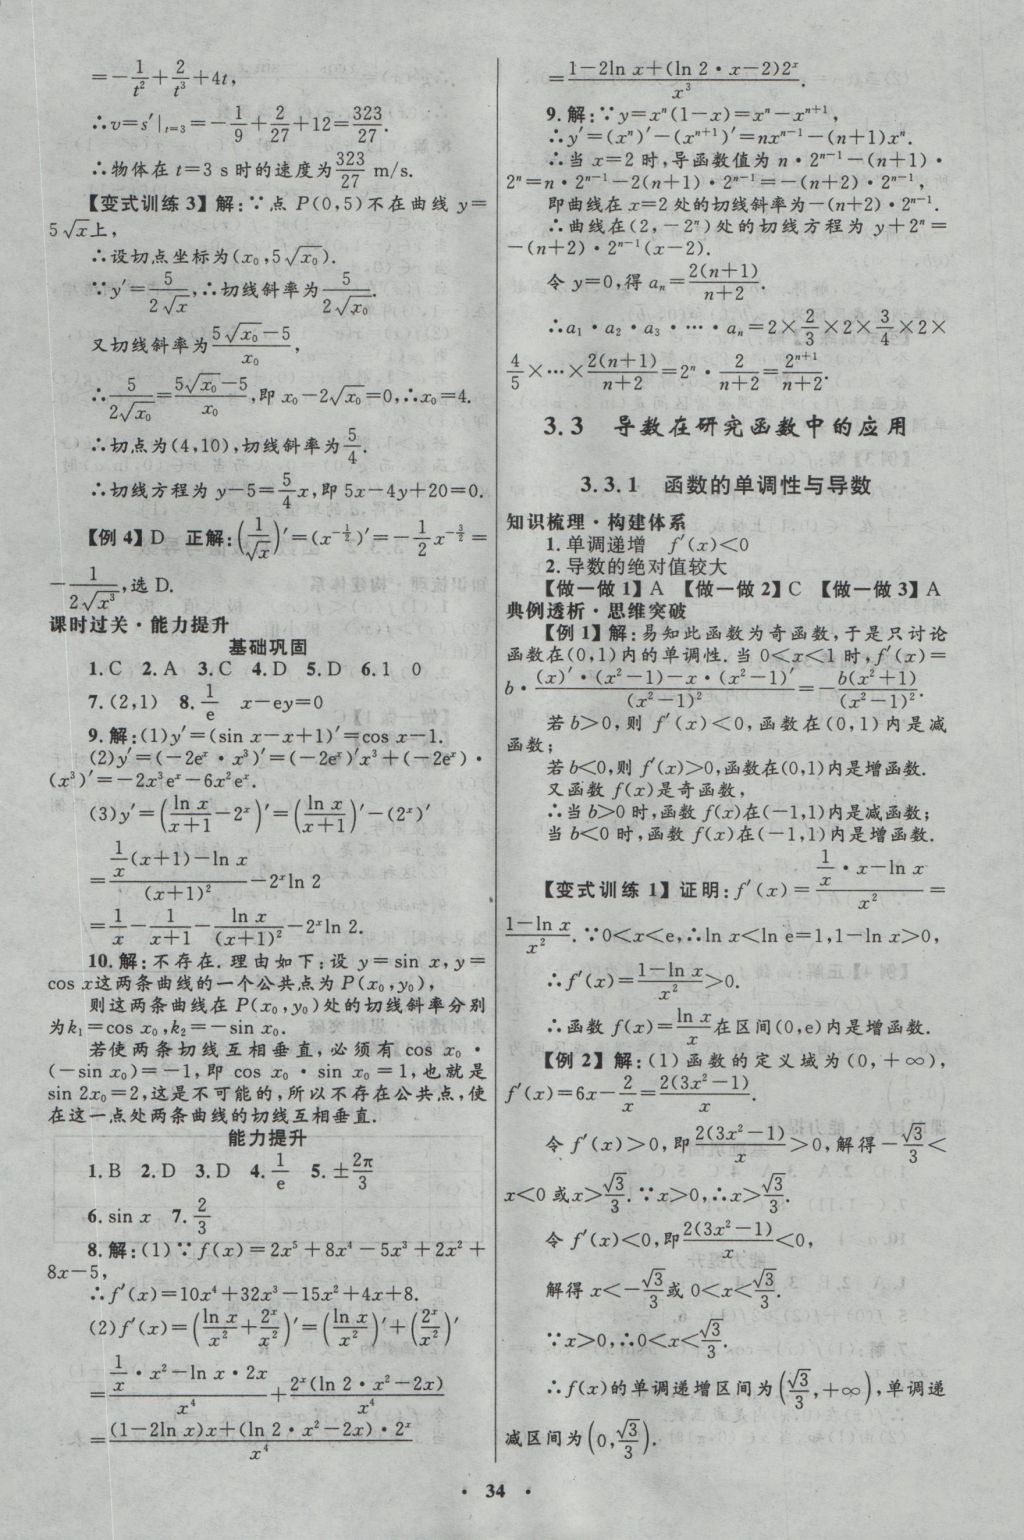 =-1/t²+2/t³+4t,
∴v=s′|t=3=-1/9+2/27+12=323/27.
∴物体在 t=3 s时的速度为323/27 m/s.
【变式训练3】解:∵点 P(0,5)不在曲线 y=
5√x上,
∴设切点坐标为(x₀,5√x₀).
∵y′=5/(2√x),∴切线斜率为5/(2√x₀).
又切线斜率为(5√x₀-5)/x₀,
∴5/(2√x₀)=(5√x₀-5)/x₀,即 x₀-2√x₀=0,∴x₀=4.
∴切点为(4,10),切线斜率为5/4.
∴切线方程为 y-5=5/4x,即 5x-4y+20=0.
【例4】D 正解:(1/√x)′=(x^(-1/2))′=-1/2x^(-3/2)=
-1/(2√x³),选 D.
课时过关·能力提升
基础巩固
1.C 2.A 3.C 4.D 5.D 6.1 0
7.(2,1) 8.1/e x-ey=0
9.解:(1)y′=(sin x-x+1)′=cos x-1.
(2)y′=(-2eˣ·x³)′=(-2eˣ)′x³+(-2eˣ)·
(x³)′=-2x³eˣ-6x²eˣ.
(3)y′=(ln x/(x+1)-2ˣ)′=(ln x/(x+1))′-(2ˣ)′
=(1/x(x+1)-ln x)/(x+1)²-2ˣln 2
=1/x-1/(x+1)-ln x/(x+1)²-2ˣln 2.
10.解:不存在.理由如下:设 y=sin x,y=
cos x这两条曲线的一个公共点为 P(x₀,y₀),
则这两条曲线在 P(x₀,y₀)处的切线斜率分别
为k₁=cos x₀,k₂=-sin x₀.
若使两条切线互相垂直,必须有 cos x₀·
(-sin x₀)=-1,即 cos x₀·sin x₀=1,也就是
sin 2x₀=2,这是不可能的,所以不存在公共点,使
在这一点处两条曲线的切线互相垂直.
能力提升
1.B 2.D 3.D 4.1/e 5.±2π/3
6.sin x 7.2/3
8.解:(1)∵f(x)=2x⁵+8x⁴-5x³+2x²+
8x-5,
∴f′(x)=10x⁴+32x³-15x²+4x+8.
(2)f′(x)=(ln x/x²+2ˣ/x²)′=(ln x/x²)′+(2ˣ/x²)′
=(1/x·x²-ln x·2x)/x⁴+2ˣ(ln 2·x²-2x)/x⁴
=((1-2ln x)x+(ln 2·x²-2x)·2ˣ)/x⁴
=(1-2ln x+(ln 2·x-2)2ˣ)/x³.
9.解:∵y=xⁿ(1-x)=xⁿ-xⁿ⁺¹,
∴y′=(xⁿ)′-(xⁿ⁺¹)′=nxⁿ⁻¹-(n+1)xⁿ.
∴当 x=2 时,导函数值为 n·2ⁿ⁻¹-(n+1)·
2ⁿ=n·2ⁿ⁻¹-2(n+1)·2ⁿ⁻¹=-(n+2)·2ⁿ⁻¹,
即曲线在 x=2 处的切线斜率为-(n+2)·2ⁿ⁻¹.
∴曲线在(2,-2ⁿ)处的切线方程为 y+2ⁿ=
-(n+2)·2ⁿ⁻¹(x-2).
令 y=0,得 aₙ=2(n+1)/(n+2).
∴a₁·a₂·a₃·…·aₙ=2×2/3×2×3/4×2×
4/5×…×2(n+1)/(n+2)=2ⁿ·2/(n+2)=2ⁿ⁺¹/(n+2).
3.3 导数在研究函数中的应用
3.3.1 函数的单调性与导数
知识梳理·构建体系
1.单调递增 f′(x)<0
2.导数的绝对值较大
【做一做1】A 【做一做2】C 【做一做3】A
典例透析·思维突破
【例1】解:易知此函数为奇函数,于是只讨论
函数在(0,1)内的单调性.当 0<x<1 时,f′(x)=
b·((x)′·(x²-1)-x·(x²-1)′)/(x²-1)²=-b(x²+1)/(x²-1)².
若 b>0,则 f′(x)<0,函数在(0,1)内是减
函数;
若 b<0,则 f′(x)>0,函数在(0,1)内是增函数.
又函数 f(x)是奇函数,
∴当 b>0 时,函数 f(x)在(-1,1)内是减函数;
当 b<0 时,函数 f(x)在(-1,1)内是增函数.
【变式训练1】证明:f′(x)=(1/x·x-ln x)/x²=
(1-ln x)/x².∵0<x<e,∴ln x<ln e=1,1-ln x>0,
∴f′(x)=(1-ln x)/x²>0.
∴函数 f(x)=ln x/x在区间(0,e)内是增函数.
【例2】解:(1)函数的定义域为(0,+∞),
f′(x)=6x-2/x=2(3x²-1)/x.
令 f′(x)>0,即2(3x²-1)/x>0,解得-√3/3<
x<0 或 x>√3/3.∵x>0,∴x>√3/3.
令 f′(x)<0,即2(3x²-1)/x<0,
解得 x<-√3/3或 0<x<√3/3.
∵x>0,∴0<x<√3/3.
∴f(x)的单调递增区间为(√3/3,+∞),单调递
减区间为(0,√3/3).
· 34 ·